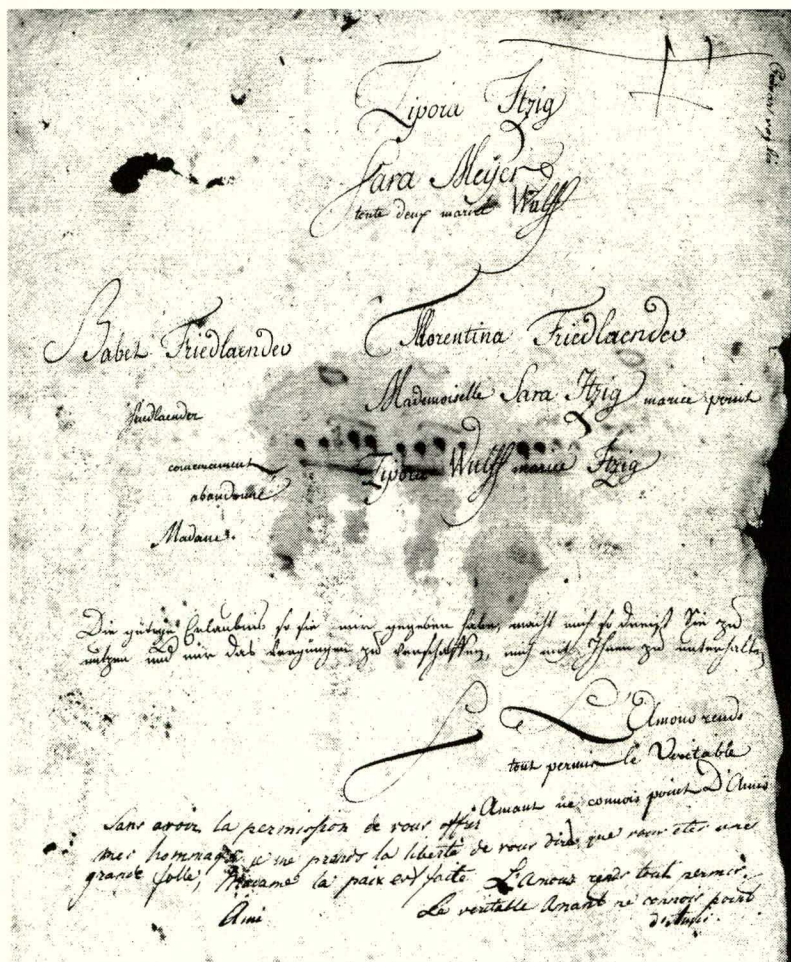 Zipora Itzig
Sara Meÿer
toute deux mariee Wulff
Babet Friedlaender
Florentina Friedlaender
Mademoiselle Sara Itzig mariee point
friedlaender
Zipora Wulff mariee Itzig
abandonné
Madame.
Die gütige Erlaubnis so sie mir gegeben habe, macht mich so dreust Sie zu
nutzen und mir das Vergnügen zu verschaffen, mich mit Ihnen zu unterhalten
L'Amour rends
tout permis le Veritable
Amant ne connois point D'Amis
Sans avoir la permission de vous offrir
mes hommages, je me prends la liberté de vous dire que vous etes une
grande folle, Madame la paix est faite L'Amour rends tout permis.
Ami
Le veritable Amant ne connois point
d'Amis.